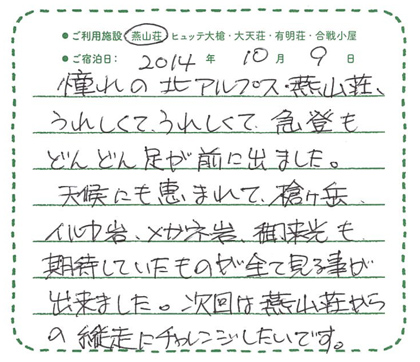 ●ご利用施設 燕山荘・ヒュッテ大槍・大天荘・有明荘・合戦小屋
●ご宿泊日： 2014 年 10 月 9 日
憧れの北アルプス・燕山荘、
うれしくて、うれしくて、急登も
どんどん足が前に出ました。
天候にも恵まれて、槍ヶ岳、
イルカ岩、メガネ岩、御来光も
期待していたものが全て見る事が
出来ました。次回は燕山荘から
の縦走にチャレンジしたいです。